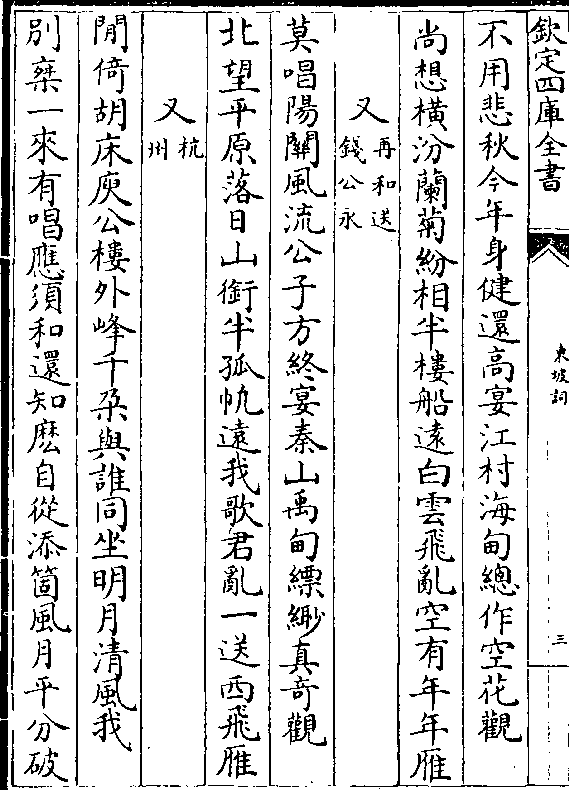 欽定四庫全書
東坡詞
三
不用悲秋今年身健還高宴江村海甸總作空花觀
尚想橫汾蘭菊紛相半樓船遠白雲飛亂空有年年雁
又再和送錢公永
莫唱陽關風流公子方終宴秦山禹甸縹緲真奇觀
北望平原落日山銜半孤帆遠我歌君亂一送西飛雁
又杭州
閒倚胡床庾公樓外峰千朶與誰同坐明月清風我
別乗一來有唱應須和還知麽自從添箇風月平分破